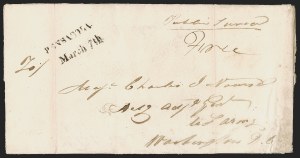 PENSACOLA
March 7th
Public Service
Free
Maj. Charles J. Nourse
Act'g Adj't Gen'l
U.S. Army
Washington D.C.